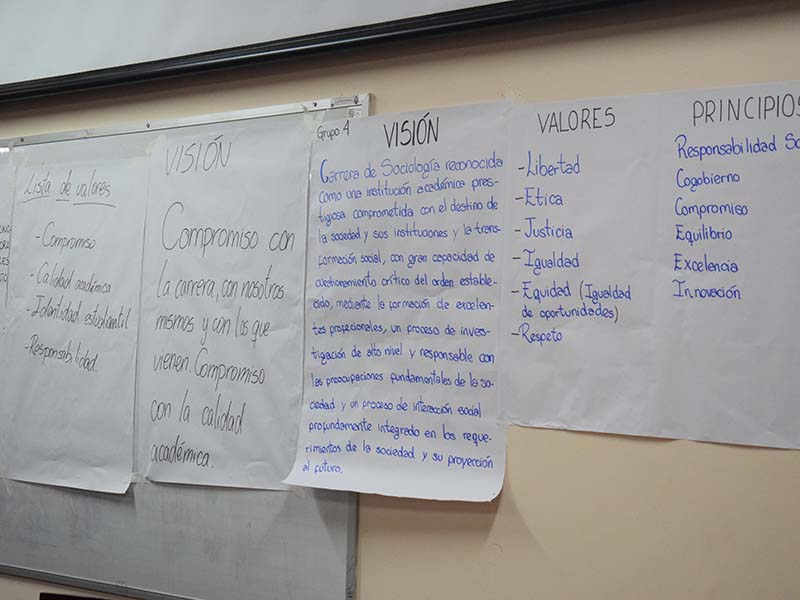 Lista de valores
- Compromiso
- Calidad académica
- Identidad estudiantil
- Responsabilidad.
VISIÓN
Compromiso con
la carrera, con nosotros
mismos y con los que
vienen. Compromiso
con la calidad
académica.
Grupo 4
VISIÓN
Carrera de Sociología reconocida
como una institución académica pres-
tigiosa comprometida con el destino de
la sociedad y sus instituciones y la trans-
formación social, con gran capacidad de
cuestionamiento crítico del orden estable-
cido, mediante la formación de excelen-
tes profecionales, un proceso de inves-
tigación de alto nivel y responsable con
las preocupaciones fundamentales de la so-
ciedad y un proceso de interacción social
profundamente integrado en los reque-
rimientos de la sociedad y su proyección
al futuro.
VALORES
- Libertad
- Etica
- Justicia
- Igualdad
- Equidad (Igualdad
de oportunidades)
- Respeto
PRINCIPIOS
Responsabilidad So
Cogobierno
Compromiso
Equilibrio
Excelencia
Innovación